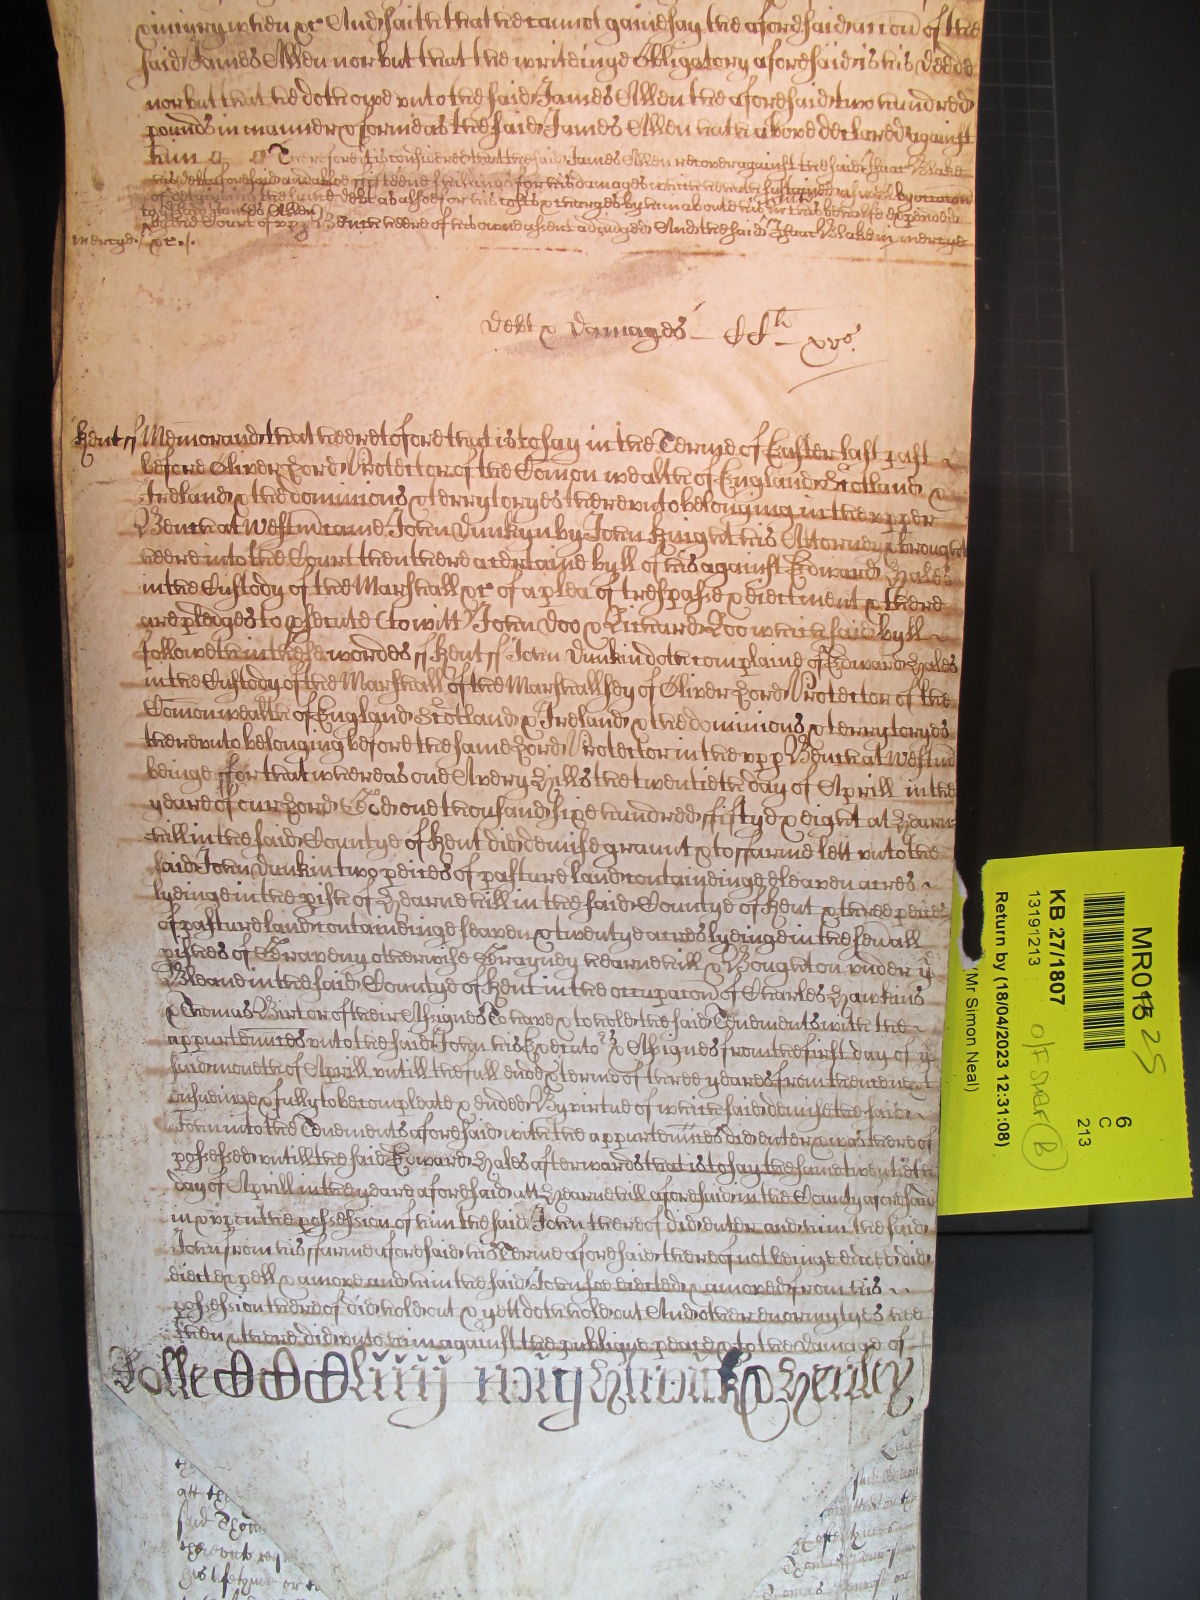 when &c And saith that he cannot gainesay the aforesaid accon of the
said James Allen nor but that the writeinge Obligatory aforesaid is his deede
nor but that he doth owe unto the said James Allen the aforesaid two hundred
pounds in manner & forme as the said James Allen hath above declared against
him Therefore it is considered that the said James Allen recover against the said Isaac Blake
his debt aforesaid and alsoe fifteene shillings for his damages which he hath susteyned aswell by occasion
of deteyninge the same debt as alsoe for his costs & charges by him about his suite in this behalfe expended
to the said James Allen
by the Court of upp Bench heere of his owne assent adjudged And the said Isaac Blake in mercye
mercye. &c./.
Debt & Damages – CCli – xvs
Kent ss Memorand that heeretofore that is to say in the Terme of Easter last past
before Oliver Lord Protector of the Comon wealth of England Scotland &
Ireland & the dominions & terrytoryes thereunto belonging in the upper
Bench at Westm came John Dunkyn by John Knight his Attorney & brought
heere into the Court then there a certaine byll of his against Edward Hales
in the Custody of the Marshall &c of a plea of trespasse & eiectment & there
are pledges to psecute (to witt) John Doo & Richard Roo which said byll
followeth in these wordes ss Kent ss John Dunkin doth complaine of Edward Hales
in the Custody of the Marshall of the Marshallsey of Oliver Lord Protector of the
Comon wealth of England Scotland & Ireland & the dominions & terrytoryes
thereunto belonging before the same Lord Protector in the upp Bench at Westm
beinge ffor that whereas one Avery Hills the twentieth day of Aprill in the
yeare of our Lord God one thousand sixe hundred fiftye & eight at Hearne
hill in the said Countye of Kent did demise graunt & to ffarme lett unto the
said John Dunkin two peeces of pasture land containeinge eleaven acres
lyeinge in the pish of Hearne hill in the said Countye of Kent & three peeces
of pasture land containeinge seaven & twentye acres lyeinge in the sevall
pishes of Graveny otherwise Grayney hearnehill & Boughton under ye
Bleane in the said Countye of Kent in the occupacon of Charles Hawkins
& Thomas Birt or of their Assignes To have & to hold the said Tenements with the
appurtennces unto the said John his Executors & Assignes from the first day of ye
said moneth of Aprill untill the full ende & terme of three yeares from thence next
ensueinge & fully to be compleate & ended By virtue of which said demise the said
John into the Tenements aforesaid with the appurtennces did enter & was thereof
possessed untill the said Edward Hales afterwards that is to say the same twentieth
day of Aprill in the yeare aforesaid att Hearnehill aforesaid in the County aforesaid
in & upon the possession of him the said John thereof did enter and him the said
John from his ffarme aforesaid his Terme aforesaid thereof not beinge ended did
eiecte expell & amove and him the said John soe eiected & amoved from his
possession thereof did hold out & yett doth hold out And other enormytyes hee
then & there did unto him against the publique peace & to the damage of
Rolle
Henley
att the
said Thom
his lifetyme or
MR01
25
6
C
213
KB 27/1807
13191213
Return by (18/04/2023 12:31:08)
(Mr Simon Neal)